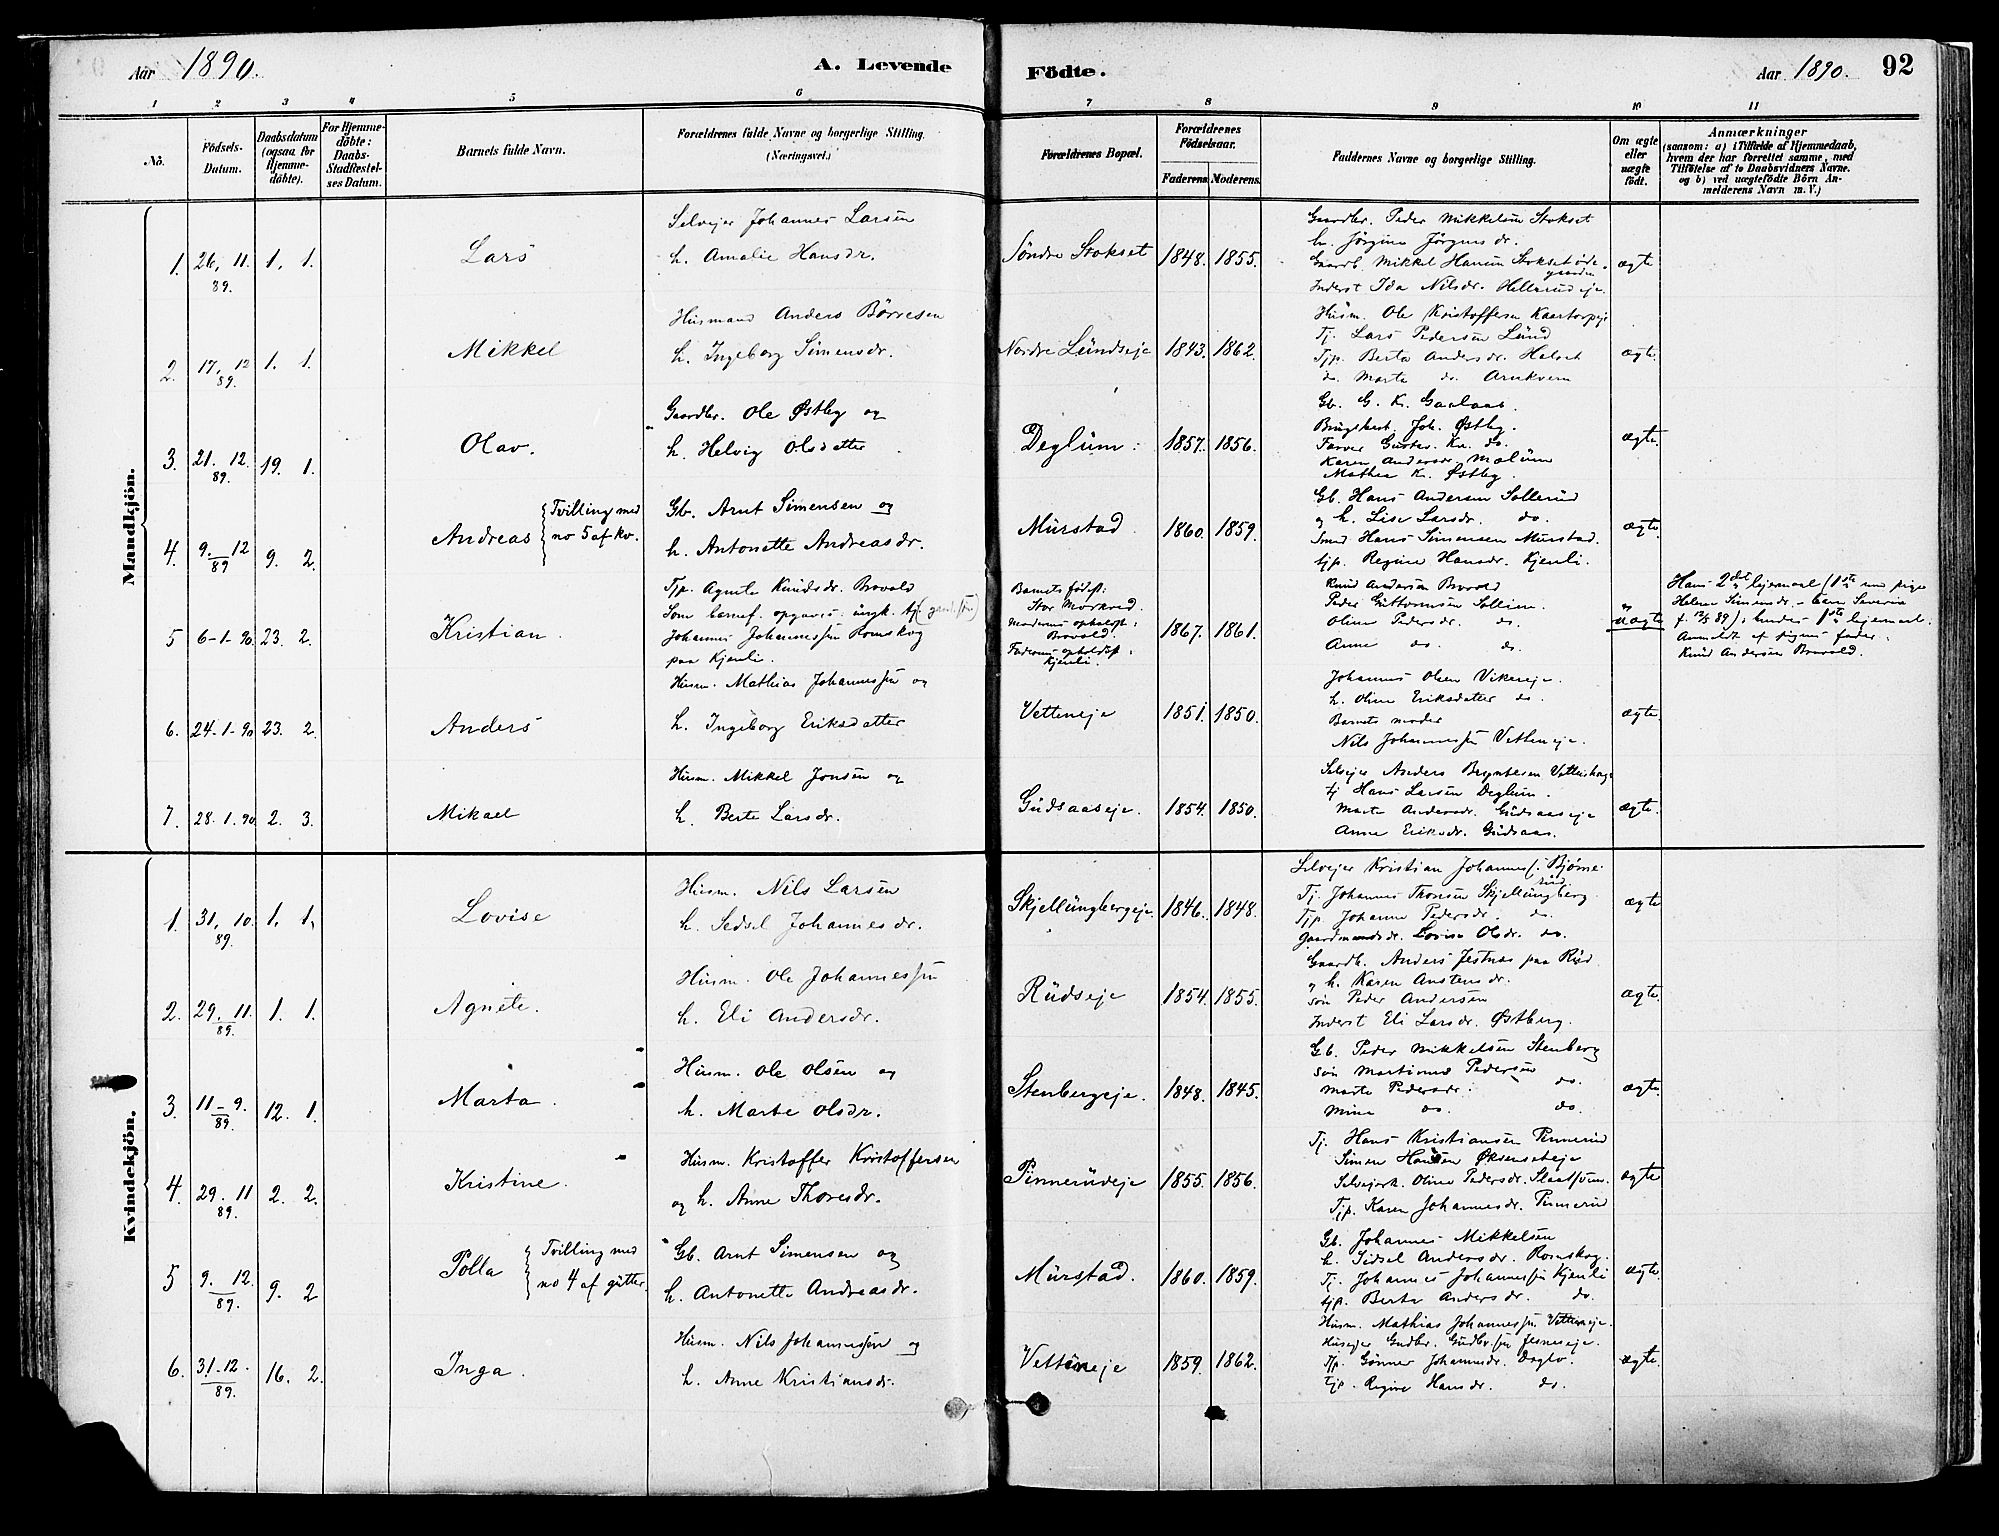 Aar 1890. A. Levende Födte. Aar 1890. 92
1 2 3 4 5 6 7 8 9 10 11
No. Födsels-Datum. Daabsdatum (ogsaa for Hjemmedöbte). For Hjemmedöbte: Daabs-Stadfæstelses Datum. Barnets fulde Navn. Forældrenes fulde Navne og borgerlige Stilling. (Næringsvei.) Forældrenes Bopæl. Forældrenes Födselsaar. Faderens Moderens. Faddernes Navne og borgerlige Stilling. Om ægte eller uægte födt. Anmærkninger (saasom: a) i Tilfælde af Hjemmedaab, hvem der har forrettet samme, med Tilföielse af to Daabsvidners Navne. og b) ved uægtefödte Börn Anmelderens Navn m. V.)
Mandkjön.
Selvejer Johannes Larsen
h. Amalie Hansdr.
1. 26, 11. 89. 1. 1. Lars Söndre Stokset 1848. 1855. ægte
Gaardbr. Peder Mikkelsen Stokset
h. Jörgine Jörgensdr.
Gaardb. Mikkel Hansen Stoksetödegaarden
Inderst Ida Nilsdr. Hellerudeje.
Husmand Anders Börresen
h. Ingeborg Simensdr.
2. 17, 12 89. 1. 1. Mikkel Nordre Lundseje 1843. 1862. ægte.
Husm. Ole Kristoffersen
Tj. Lars Pedersen Lund
Tjp. Berta Andersdr. Helset
do. Marta do. Arnkvern
Gaardbr. Ole Østby og
h. Helvig Olsdatter
3. 21. 12. 89. 19. 1. Olav. Deglum: 1857. 1856. ægte.
Gb. G. K. Gaalaas.
Joh. Østby.
Karen Andersdr. Mælum
Mathea K. Østby.
Gb. Arnt Simensen og
h. Antonette Andreasdr.
4. 9. 12 89 9. 2. Andreas { Tvilling med no 5 af kv. Murstad. 1860. 1859. ægte.
Gb. Hans Andersen Sollerud
og h. Lise Larsdr. do.
Smed Hans Simensen Murstad.
tjp. Regine Hansdr. Kjenli.
Tjp. Agnete Knudsdr. Brovold
Som barnef. opgaves: ungk. tj.
Johannes Johannessen Romskog
paa Kjenli.
5 6-1-90. 23. 2. Kristian. 1867. 1861. uægte
Barnets födest: Stor Morkved. Moderens opholdst: Brovold. Faderens opholdst: Kjenli.
Knud Andersen Brovold
Peder Guttormsen Sollien
Oline Pedersdr. do.
Anne do. do.
Hans 2det lejermaal (1ste med pige
Helene Simensdr. – barn Severin
f. 12/5 89); hendes 1ste lejermaal.
Anmeldt af pigens fader:
Knud Andersen Brovold.
Husm. Mathias Johannessen og
h. Ingeborg Eriksdatter
6. 24-1-90 23. 2. Anders Vetteneje 1851. 1850. ægte.
Johannes Olsen Vikereje.
h. Oline Eriksdatter do.
Barnets moder
Nils Johannessen Vetteneje.
Husm. Mikkel Jonsen og
h. Berte Larsdr.
7. 28. 1. 90. 2. 3. Mikael Gudsaaseje. 1854. 1850. ægte.
Selvejer Anders Berntsen
tj Hans Larsen Deglum.
Marte Andersdr. Gudsaaseje
Anne Eriksdr. Gudsaas.
Kvindekjön.
Husm. Nils Larsen
h. Sedsel Johannesdr.
1. 31, 10. 89. 1. 1, Lovise Skjellungbergeje. 1846. 1848. ægte
Selvejer Kristian Johannes. Bjørnerud
Tj. Johannes Thorsen Skjellungberg.
Tjp. Johanne Pedersdr. do.
Gaardmandsdr. Lovise Olsdr. do.
Husm. Ole Johannessen
h. Eli Andersdr.
2. 29. 11. 89. 1. 1. Agnete. Rudseje 1854. 1855. ægte.
Gaardb. Anders Jestnæs paa Rud
og h. Karen Austensdr.
sön Peder Andersen
Inderst Eli Larsdr. Østberg.
Husm. Ole Olsen og
h. Marte Olsdr.
3. 11-9. 89 12. 1. Marta. Stenbergeje. 1848. 1845. ægte.
Gb. Peder Mikkelsen Stenberg
sön Martinus Pedersen
Marte Pedersdr. do.
Mina do. do.
Husm. Kristoffer Kristoffersen
og h. Anne Thoresdr.
4. 29. 11 89. 2. 2. Kristine. Pinnerudeje 1855. 1856. ægte
Tj. Hans Kristiansen Pinnerud
Simen Hansen Øksenseteje
Oline Pedersdr.
Tjp. Karen Johannesdr. Pinnerud
Gb. Arnt Simensen og
h. Antonette Andreasdr.
5 9. 12. 89. 9. 2 Polla { Tvilling med no 4 af gutter. Murstad. 1860. 1859. ægte.
Gb. Johannes Mikkelsen
h. Sidsel Andersdr. Romskog.
Tj. Johannes Johannessen Kjenli
tjp. Berta Andersdr. do.
Husm. Nils Johannessen og
h. Anne Kristiansdr.
6. 31.-12. 89. 16. 2. Inga. Vetteneje 1859. 1862. ægte.
Husm. Mathias Johannessen Vetteneje.
Gudbr. Gudbrsen Jesneseje.
Tjp. Gunner Johannesdr.
tjp. Regine Hansdr. do.